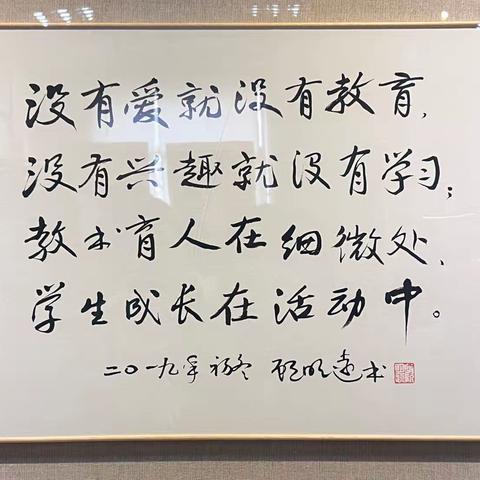 没有爱就没有教育,
没有兴趣就没有学习;
教书育人在细微处、
学生成长在活动中。
二〇一九年初冬 顾明远书